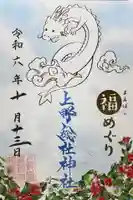 福めぐり
上野總社神社
令和六年十月十三日